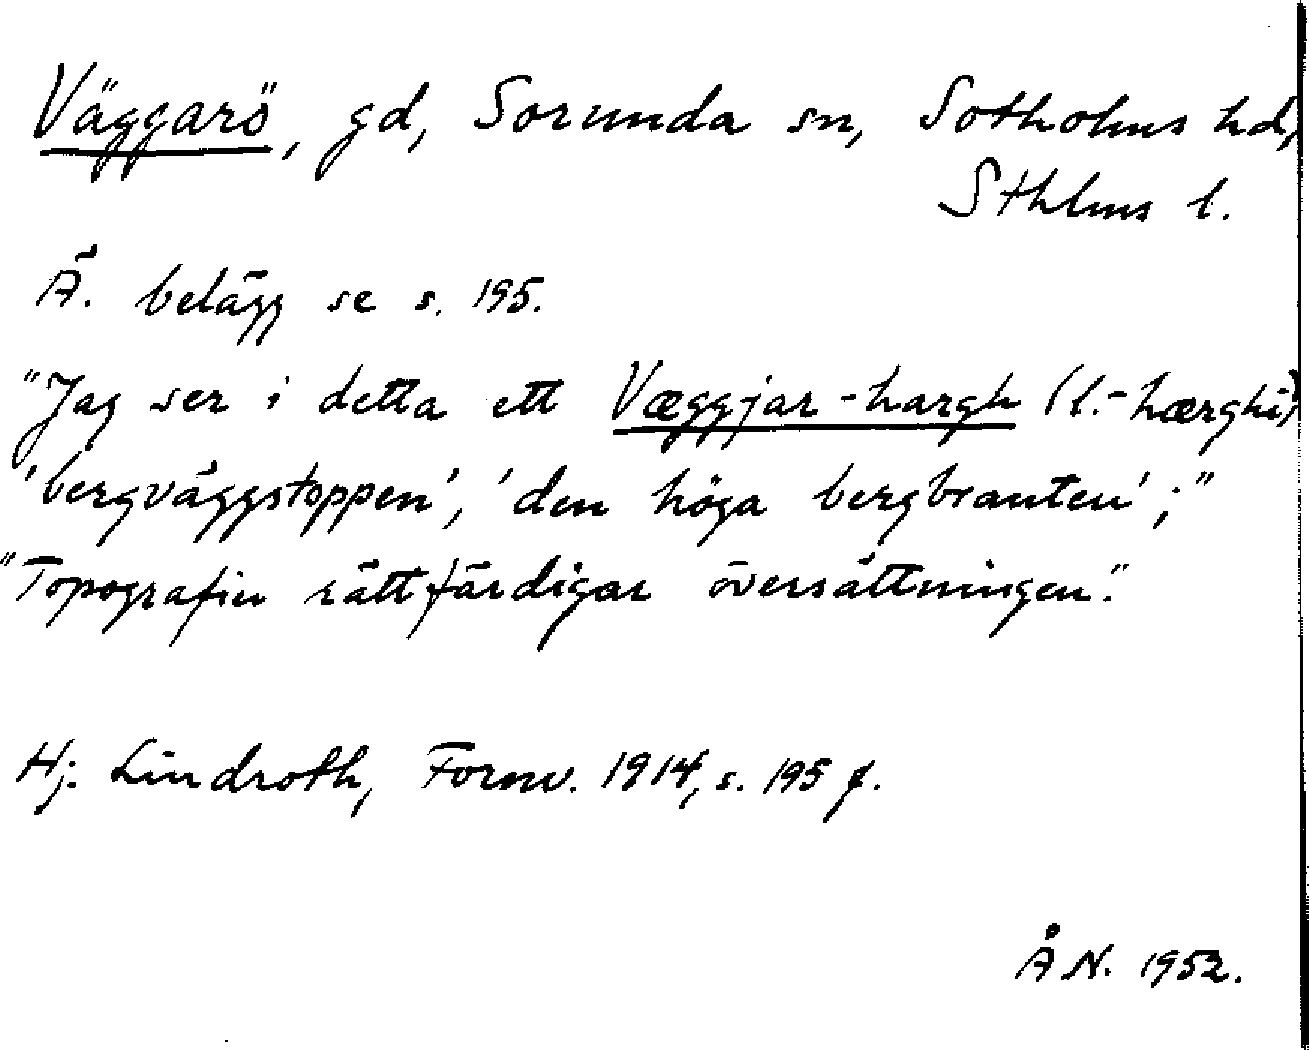 Väggarö, gd, Sorunda sn, Sotholms hd,
Sthlms l.
Ä. belägg se s. 195.
"Jag ser i detta ett Væggjar-hargh (l.-hærghi)
'bergväggstoppen', 'den höga bergbranten';"
"Topografin rättfärdigar översättningen".
Hj. Lindroth, Fornv. 1914, s. 195 f.
Å N. 1952.